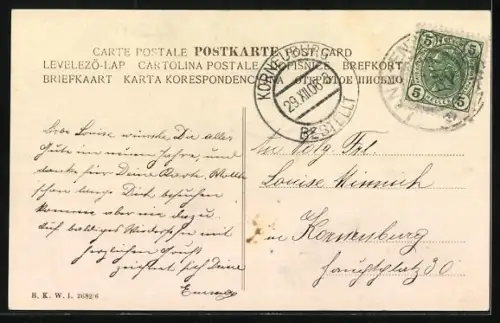 CARTE POSTALE POSTKARTE POST CARD
LEVELEZŐ-LAP CARTOLINA POSTALE DOPISNICE BREFKORT
BRIEFKAART KARTA KORESPONDENCYJNA ОТКРЫТОЕ ПИСЬМО
KORNEUBURG
29.XII.06
BESTELLT
5 5
5 5
Liebe Louise wünsche Dir alles
Gute im neuen Jahre, und
danke für Deine Karte. Wollte
schon lange Dich besuchen
komme aber nie dazu.
Auf baldiges Wiedersehn mit
herzlichen Gruß
zeichnet sich Deine
An Wolg Frl.
Louise
in Korneuburg
Hauptplatz 30
B. K. W. I. 2682/6